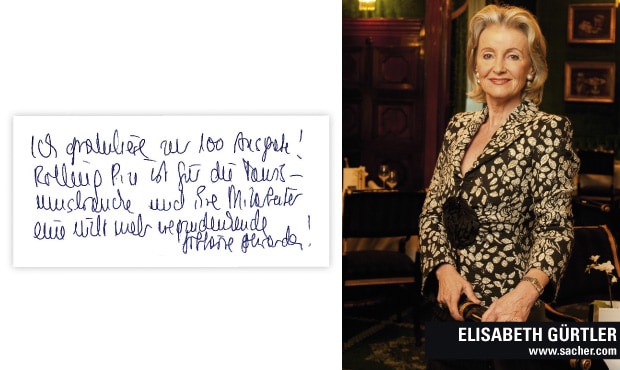 Ich gratuliere zur 100 Ausgabe!
Rolling Pin ist für die Touris-
musbranche und ihre Mitarbeiter
eine nicht mehr wegzudenkende
geworden!
ELISABETH GÜRTLER
www.sacher.com